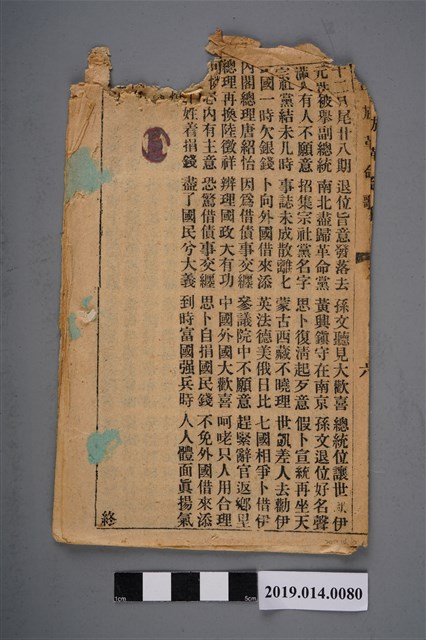 十二月尾廿八期 退位旨意發落去 孫文聽見大歡喜 總統位讓世凱伊
元洪被舉副總統 南北盡歸革命黨 黃興鎮守在南京 孫文退位好名聲
滿人有人不願意 招集宗社黨名字 思卜復清起歹意 假卜宣統再坐天
宗社黨結未几時 事誌未成散離七 蒙古西藏不曉理 世凱差人去勸伊
國一時欠銀錢 卜向外國借來添 英法德美俄日比 七國相爭卜借伊
內閣總理唐紹怡 因為借債事交纏 參議院中不願意 趕緊辭官返鄉里
總理再換陸徵祥 辨理國政大有功 中國外國大歡喜 呵咾只人用合理
心內有主意 恐驚借債事交纏 思卜自捐國民錢 不免外國借來添
姓着捐錢 盡了國民兮大義 到時富國强兵時 人人體面真揚氣
終
革命歌
六
1cm
5cm
2019.014.0080